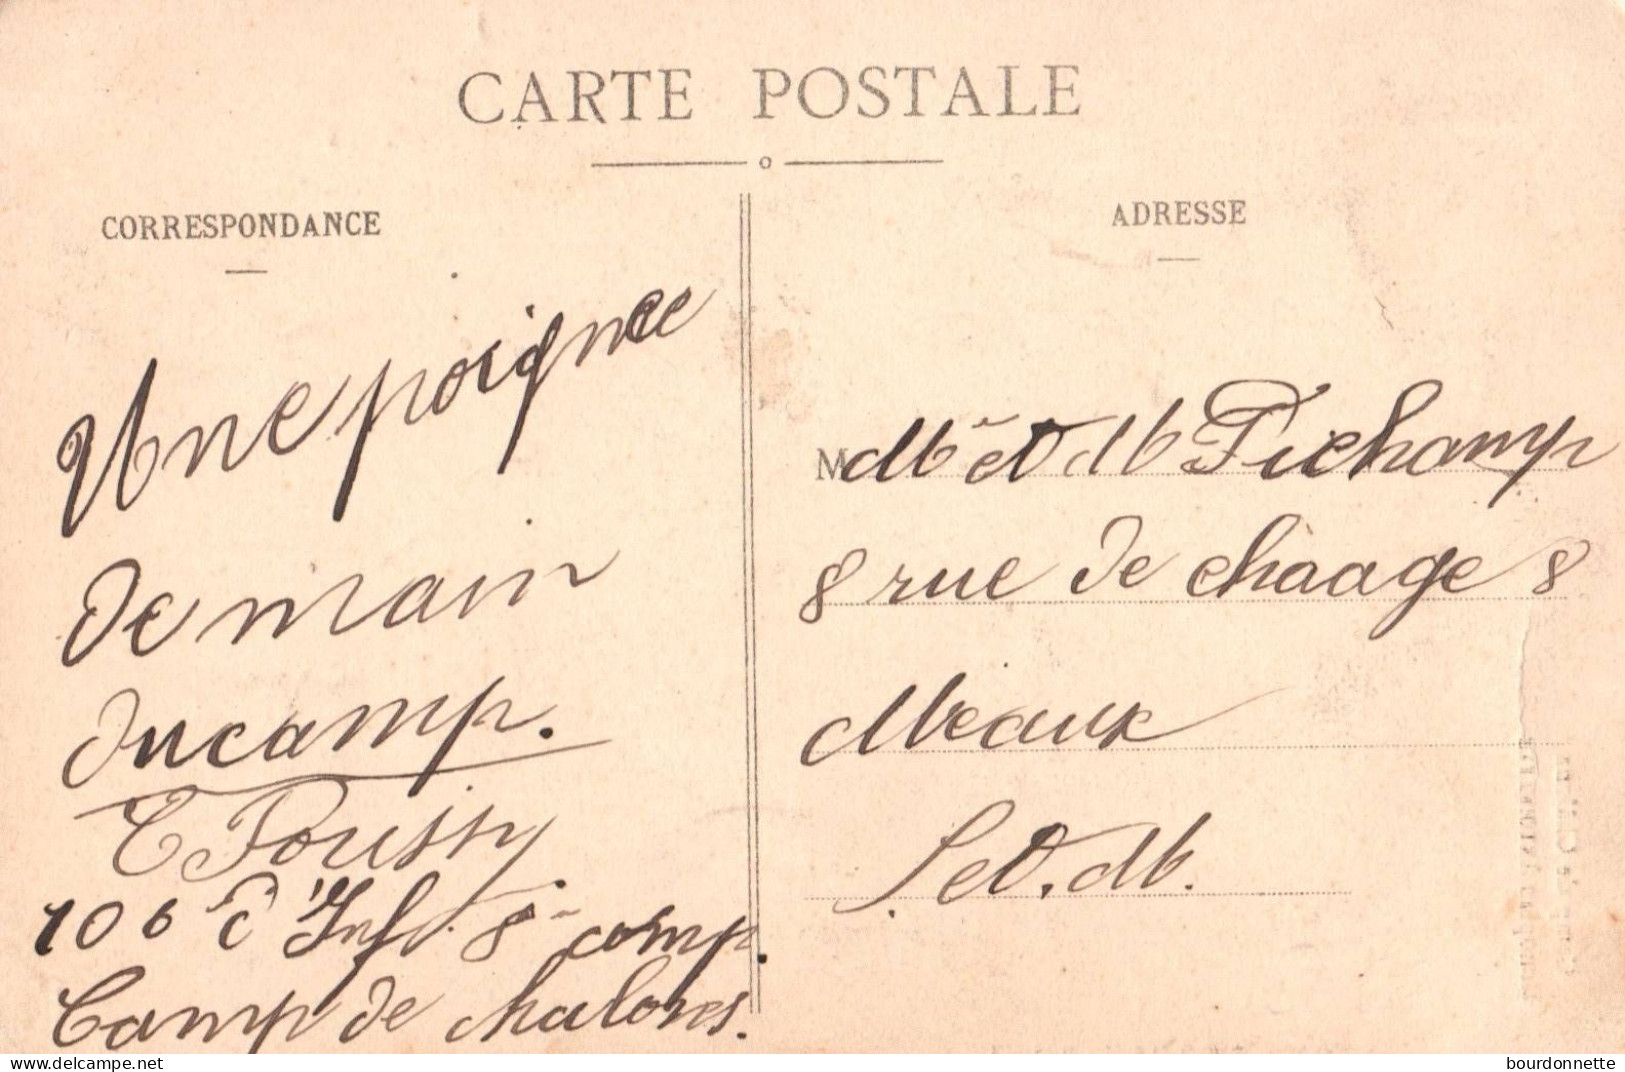 CARTE POSTALE
CORRESPONDANCE
Une poignee
de main
du camp.
E Poussy
106 e d'Inf. 8e comp.
Camp de chalons.
ADRESSE
M Mr et M Pichamp
8 rue de chaage 8
Meaux
S. et. M.
bourdonnette